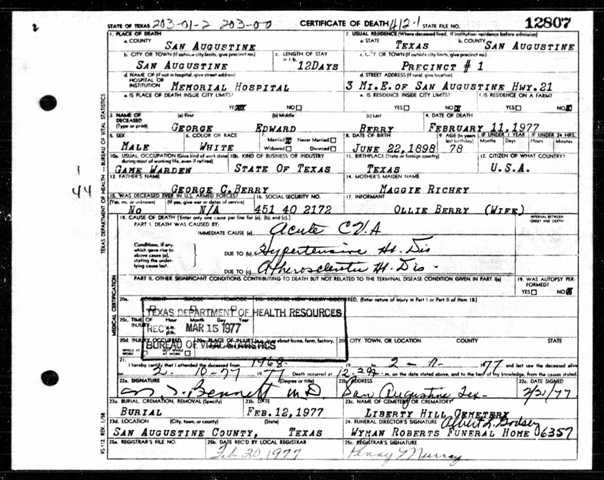 STATE OF TEXAS 203-01-2 203-00 CERTIFICATE OF DEATH 412-1 STATE FILE NO. 12807
1. PLACE OF DEATH 2. USUAL RESIDENCE (Where deceased lived. If institution: residence before admission)
a. COUNTY SAN AUGUSTINE a. STATE TEXAS b. COUNTY SAN AUGUSTINE
b. CITY OR TOWN (If outside city limits, give precinct no.) SAN AUGUSTINE c. LENGTH OF STAY 12DAYS c. CITY OR TOWN (If outside city limits, give precinct no.) PRECINCT # 1
d. NAME OF (If not in hospital, give street address) HOSPITAL OR INSTITUTION MEMORIAL HOSPITAL d. STREET ADDRESS (If rural, give location) 3 MI.E.OF SAN AUGUSTINE HWY.21
e. IS PLACE OF DEATH INSIDE CITY LIMITS? YES NO e. IS RESIDENCE INSIDE CITY LIMITS? YES NO f. IS RESIDENCE ON A FARM? YES NO
3. NAME OF DECEASED (Type or print) (a) First GEORGE (b) Middle EDWARD (c) Last BERRY 4. DATE OF DEATH FEBRUARY 11,1977
5. SEX MALE 6. COLOR OR RACE WHITE Married Never Married Widowed Divorced 8. DATE OF BIRTH JUNE 22,1898 78 IF UNDER 1 YEAR Months Days IF UNDER 24 HRS. Hours Min.
10a. USUAL OCCUPATION (Give kind of work done during most of working life, even if retired) GAME WARDEN 10b. KIND OF BUSINESS OR INDUSTRY STATE OF TEXAS 11. BIRTHPLACE (State or foreign country) TEXAS 12. CITIZEN OF WHAT COUNTRY? U.S.A.
13. FATHER'S NAME GEORGE G.BERRY 14. MOTHER'S MAIDEN NAME MAGGIE RICHEY
15. WAS DECEASED EVER IN U.S. ARMED FORCES? NO N/A 16. SOCIAL SECURITY NO. 451 40 2172 17. INFORMANT OLLIE BERRY (WIFE)
18. CAUSE OF DEATH [Enter only one cause per line for (a), (b), and (c).] INTERVAL BETWEEN ONSET AND DEATH
PART I. DEATH WAS CAUSED BY:
IMMEDIATE CAUSE (a) Acute CVA
Conditions, if any, which gave rise to above cause (a), stating the underlying cause last. DUE TO (b) Hypertensive Ht. Dis
DUE TO (c) Atherosclerotic Ht. Dis -
PART II. OTHER SIGNIFICANT CONDITIONS CONTRIBUTING TO DEATH BUT NOT RELATED TO THE TERMINAL DISEASE CONDITION GIVEN IN PART I(a) 19. WAS AUTOPSY PERFORMED? YES NO
TEXAS DEPARTMENT OF HEALTH RESOURCES
REC'D MAR 15 1977
BUREAU OF VITAL STATISTICS
20f. CITY, TOWN, OR LOCATION COUNTY STATE
21. I hereby certify that I attended the deceased from 1968 to 2-11-77 and last saw the deceased alive
2-10-77 Death occurred at m. on the date stated above, and to the best of my knowledge, from the causes stated.
22a. SIGNATURE Bennett MD (Degree or title) 22b. ADDRESS San Augustine Tex 22c. DATE SIGNED 2/21/77
23a. BURIAL, CREMATION, REMOVAL (Specify) BURIAL 23b. DATE FEB.12,1977 23c. NAME OF CEMETERY OR CREMATORY LIBERTY HILL CEMETERY
23d. LOCATION (City, town, or county) (State) SAN AUGUSTINE COUNTY, TEXAS 24. FUNERAL DIRECTOR'S SIGNATURE WYMAN ROBERTS FUNERAL HOME 06357
25a. REGISTRAR'S FILE NO. 25b. DATE REC'D BY LOCAL REGISTRAR Feb 20, 1977 25c. REGISTRAR'S SIGNATURE Murray
TEXAS DEPARTMENT OF HEALTH - BUREAU OF VITAL STATISTICS
MEDICAL CERTIFICATION
1
44